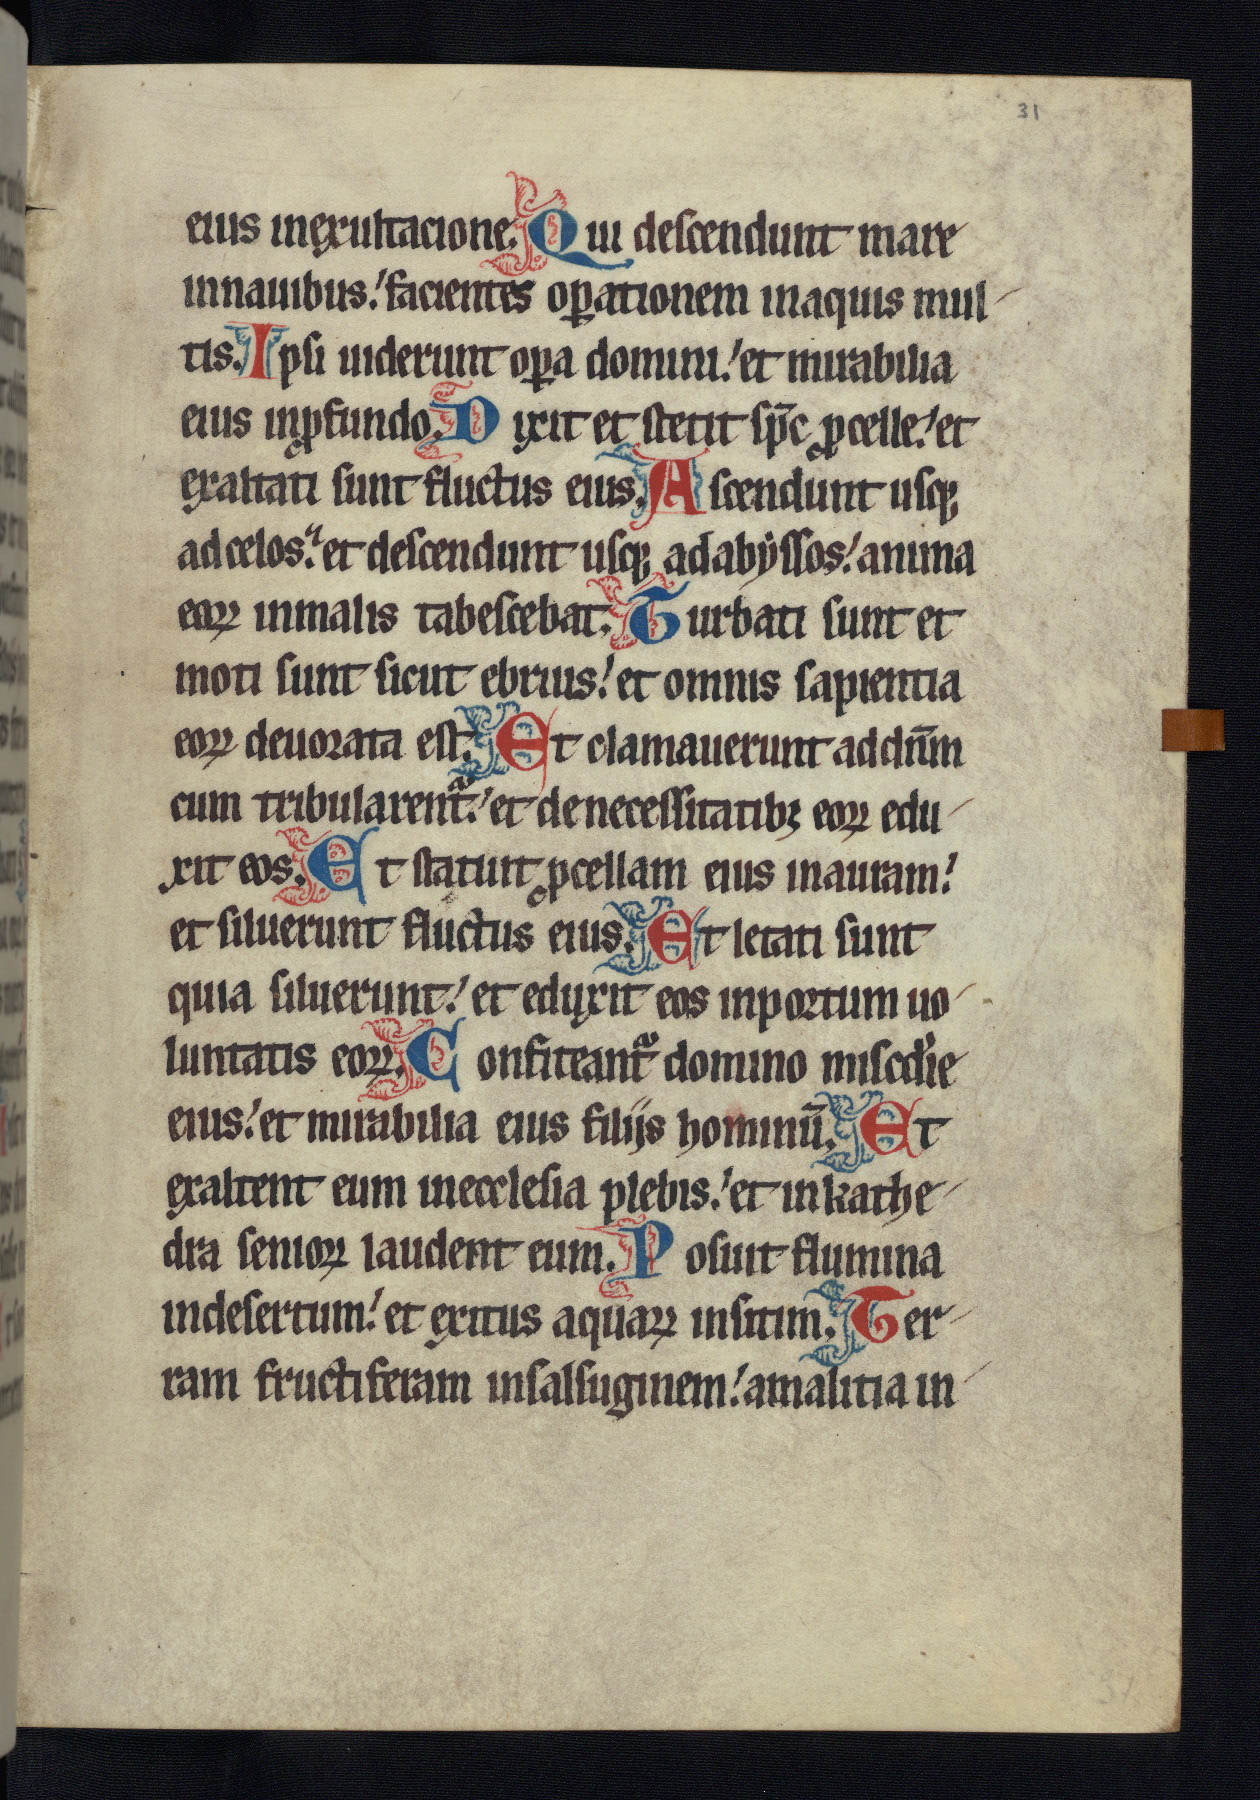 31
eius inexultacione. Qui descendunt mare
innauibus: facientes oꝑationem inaquis mul
tis. Ipsi uiderunt oꝑa domini: et mirabilia
eius inꝓfundo. Dixit et stetit sp̄c ꝓcelle: et
exaltati sunt fluctus eius. Ascendunt usqꝫ
adcelos: et descendunt usqꝫ adabẏssos: anima
eoꝝ inmalis tabescebat. Turbati sunt et
moti sunt sicut ebrius: et omnis sapientia
eoꝝ deuorata est. Et clamauerunt addn̄m
cum tribularent᷑: et denecessitatibꝫ eoꝝ edu
xit eos. Et statuit ꝓcellam eius inauram:
et siluerunt fluctus eius. Et letati sunt
quia siluerunt: et eduxit eos inportum uo
luntatis eoꝝ. Confiteant᷑ domino miscd̓ie
eius: et mirabilia eius filijs hominū. Et
exaltent eum inecclesia plebis: et inkathe
dra senioꝝ laudent eum. Posuit flumina
indesertum: et exitus aquaꝝ insitim. Ter
ram fructiferam insalsuginem: amalitia in